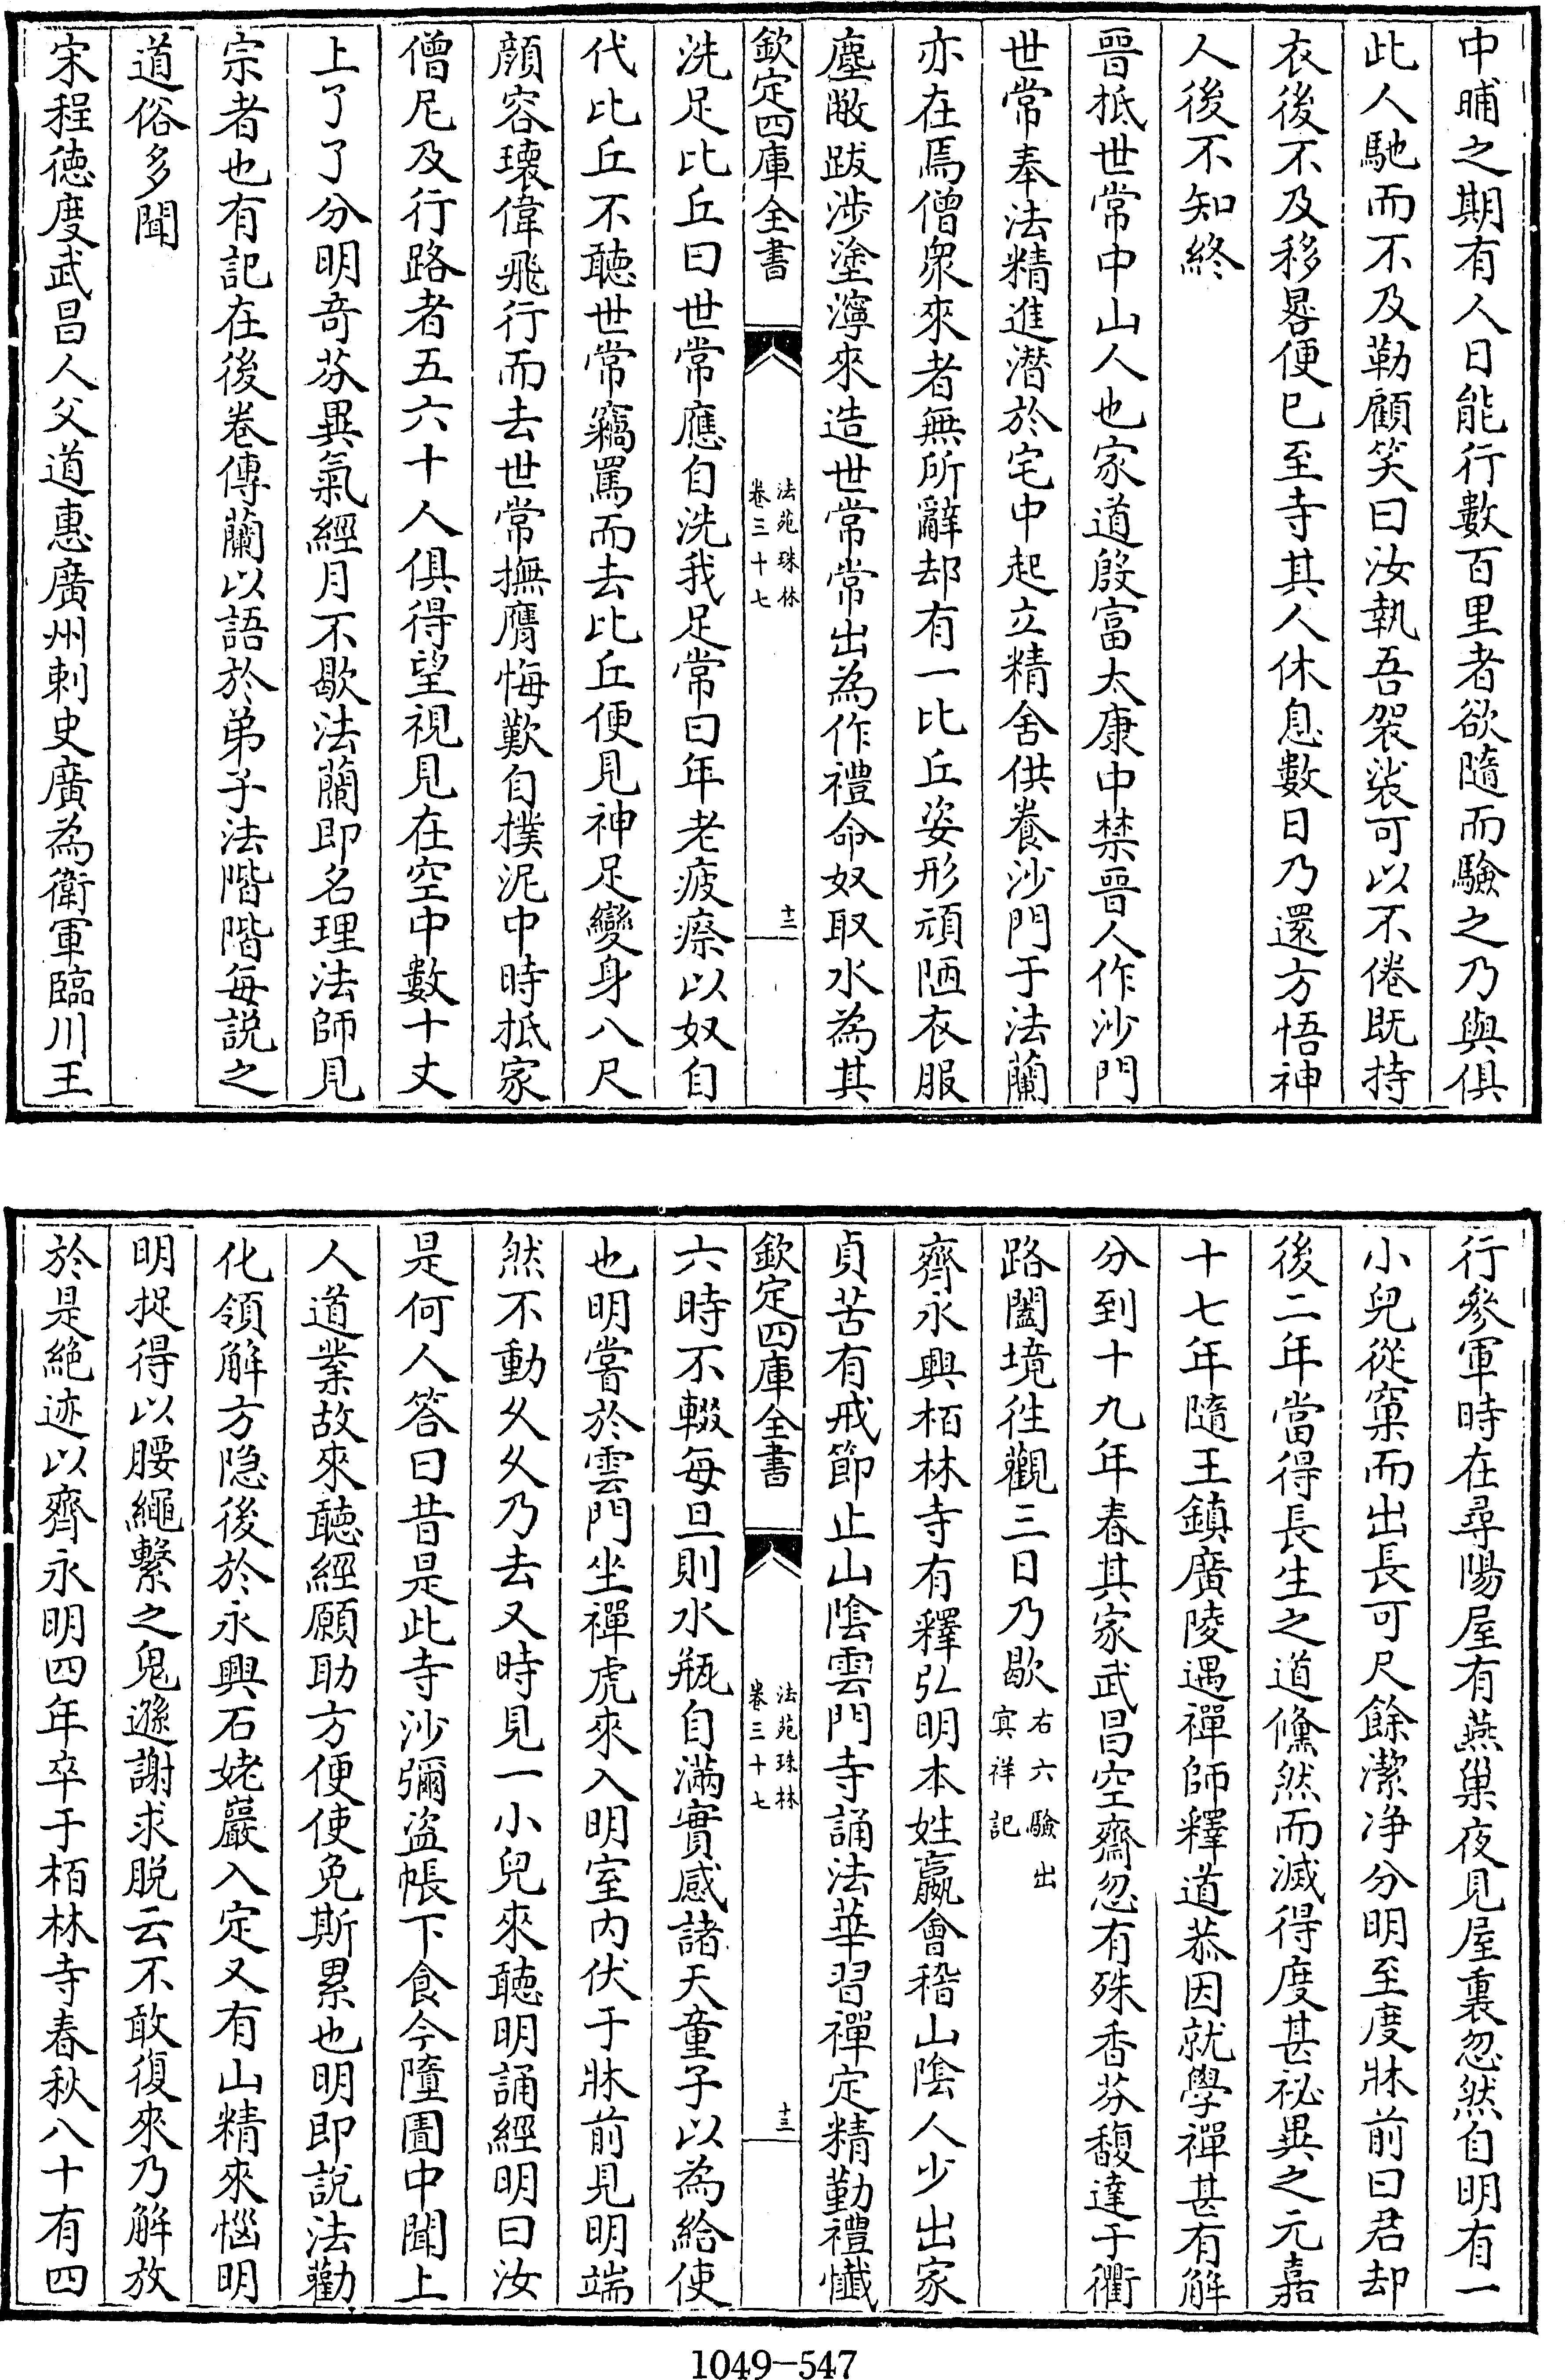 中晡之期有人日能行數百里者欲隨而驗之乃與俱
此人馳而不及勒顧笑曰汝執吾袈裟可以不倦既持
衣後不及移晷便已至寺其人休息數日乃還方悟神
人後不知終
晉抵世常中山人也家道殷富太康中禁晉人作沙門
世常奉法精進潛於宅中起立精舍供養沙門于法蘭
亦在焉僧衆來者無所辭却有一比丘姿形頑陋衣服
塵敝跋涉塗濘來造世常常出為作禮命奴取水為其
欽定四庫全書
法苑珠林
卷三十七
十二
洗足比丘曰世常應自洗我足常曰年老疲瘵以奴自
代比丘不聽世常竊罵而去比丘便見神足變身八尺
顔容瓌偉飛行而去世常撫膺悔歎自撲泥中時抵家
僧尼及行路者五六十人俱得望視見在空中數十丈
上了了分明奇芬異氣經月不歇法蘭即名理法師見
宗者也有記在後卷傳蘭以語於弟子法階階每説之
道俗多聞
宋程德度武昌人父道惠廣州刺史廣為衛軍臨川王
行參軍時在尋陽屋有燕巢夜見屋裏忽然自明有一
小兒從窠而出長可尺餘潔净分明至度牀前曰君却
後二年當得長生之道儵然而滅得度甚祕異之元嘉
十七年隨王鎮廣陵遇禪師釋道恭因就學禪甚有解
分到十九年春其家武昌空齋忽有殊香芬馥達于衢
路闔境往觀三日乃歇
右六驗出
㝠祥記
齊永興栢林寺有釋弘明本姓嬴會稽山陰人少出家
貞苦有戒節止山陰雲門寺誦法華習禪定精勤禮懺
欽定四庫全書
法苑珠林
卷三十七
十三
六時不輟每旦則水瓶自滿實感諸天童子以為給使
也明嘗於雲門坐禪虎來入明室内伏于牀前見明端
然不動久久乃去又時見一小兒來聽明誦經明曰汝
是何人答曰昔是此寺沙彌盜帳下食今墮圊中聞上
人道業故來聽經願助方便使免斯累也明即説法勸
化領解方隐後於永興石姥巖入定又有山精來惱明
明捉得以腰繩繫之鬼遜謝求脱云不敢復來乃解放
於是絶迹以齊永明四年卒于栢林寺春秋八十有四
1049-547